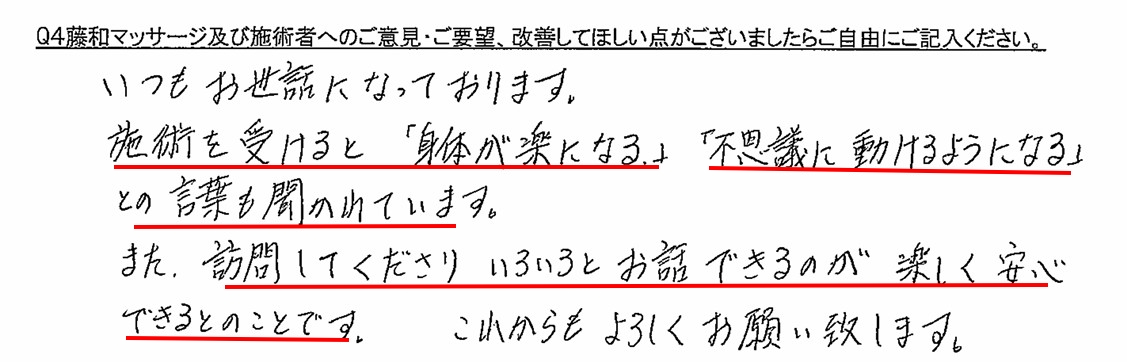 Q4藤和マッサージ及び施術者へのご意見・ご要望、改善してほしい点がございましたらご自由にご記入ください。
いつもお世話になっております。
施術を受けると「身体が楽になる。」「不思議に動けるようになる」
との言葉も聞かれています。
また、訪問してくださりいろいろとお話できるのが楽しく安心
できるとのことです。 これからもよろしくお願い致します。